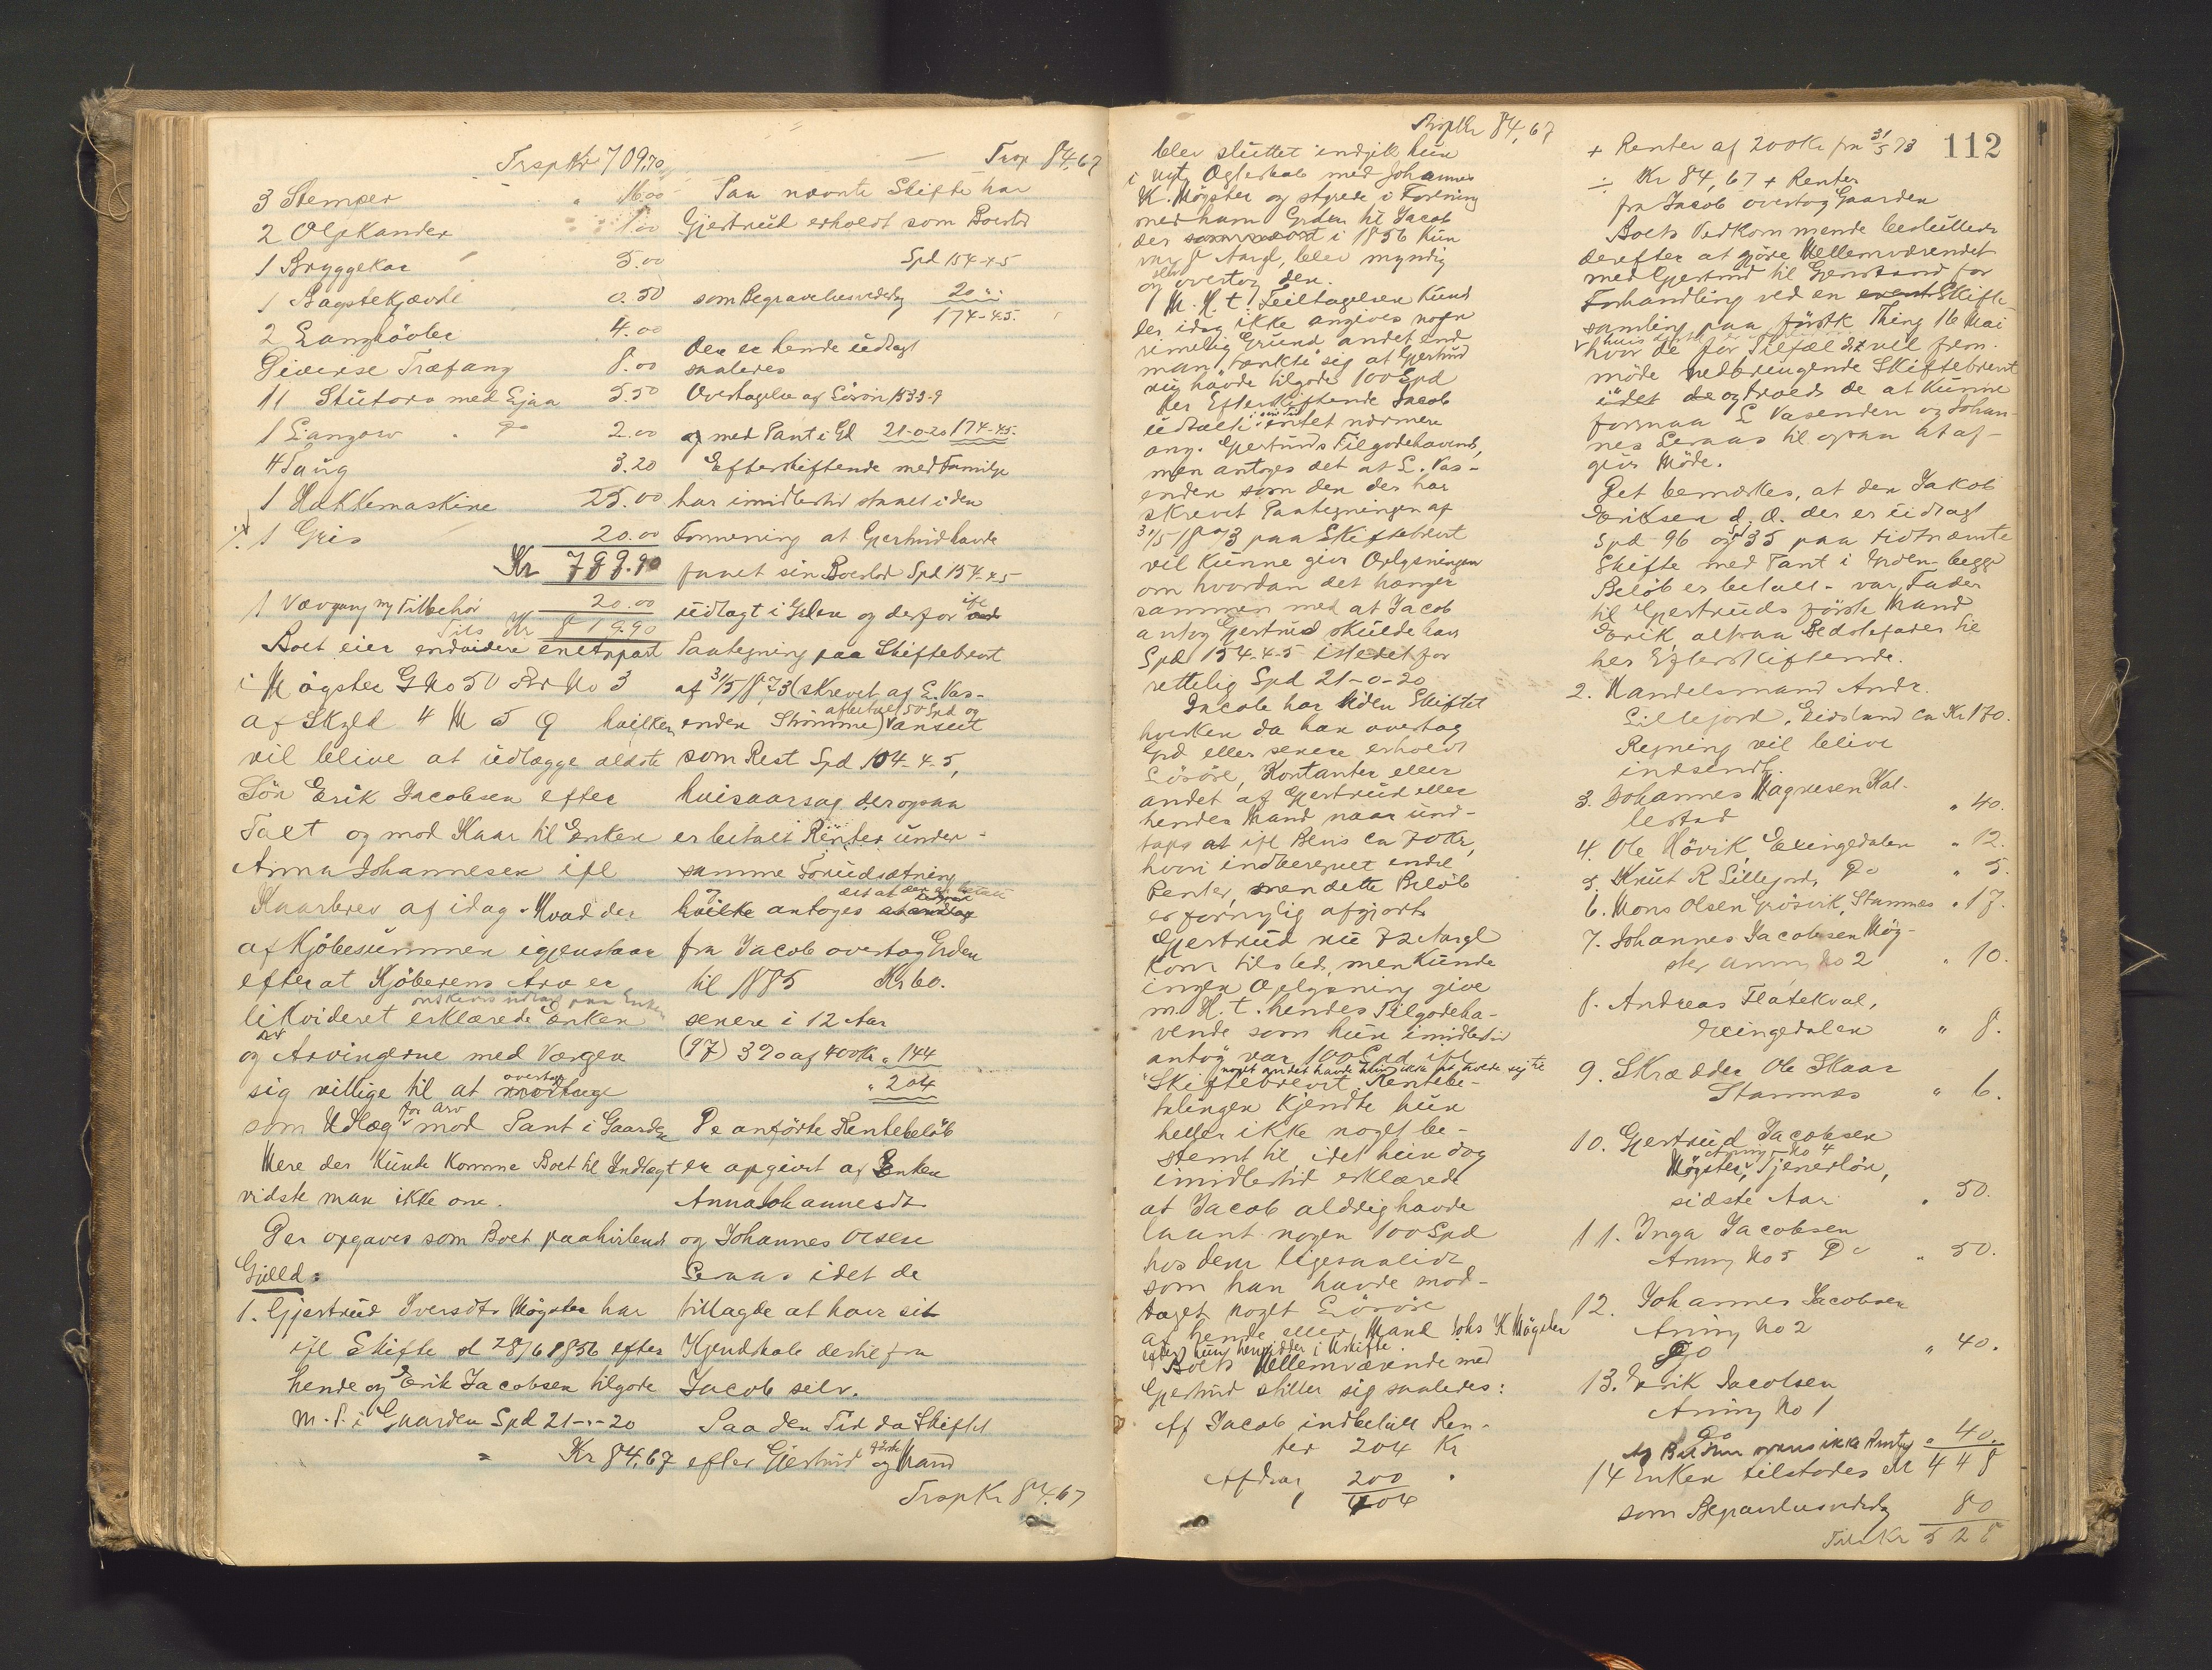 Trsp Kr 709.70
3 Stemper " 16.00
2 Oljekander 1.00
1 Bryggekar 5.00
1 Bagstekjævle 0.50
2 Langhövler 4.00
Diverse Træfang 8.00
11 Stutorv med Ljaa 5.50
1 Langorv " Do 2.00
4 Saug 3.20
1 Hakkemaskine 25.00
1 Gris 20.00
Kr 799.90
1 Vævgang m/ Tilbehör 20.00
Tils Kr 819.90
Boet eier endvidere en Etrpart
i Mögster GNo 50 BrNo 3
af Skyld 4 M 5 Ø hvilken
vil blive at udlægge ældste
Sön Erik Jacobsen efter
Taxt og mod Kaar til Enken
Anna Johannesen ifl
Kaarbrev af idag. Hvad der
af Kjöbesummen igjenstaar
efterat Kjöberens Arv er
likvideret erklærede Enken
og Arvingerne med Værgen
sig villige til at modtage overtage
som Udlæg for Arv mod Pant i Gaarden
Mere der kunde komme Boet til Indtægt
vidste man ikke om.
Der opgaves som Boet paahvilende
Gjeld:
1. Gjertrud Iversdtr Mögster har
ifl Skifte d 28/6 1856 efter
hende og Erik Jacobsen tilgode
m. P. i Gaarden Spd 21-"-20
= Kr 84,67
Trsp 84,67
Paa nævnte Skifte har
Gjertrud erholdt som Boeslod
Spd 154-4-5
som Begravelsesvederlag 20 " "
174-4-5.
Den er hende udlagt
saaledes
Overtagelse af Lösöre 153-3-9
og med Pant i Gd 21-0-20 174-4-5.
Efterskiftende med Familje
har imidlertid staaet i den
Formening at Gjertrud havde
faaet sin Boeslod Spd 154-4-5
udlagt i Gden og derfor ifl
Paategning paa Skiftebrevt
af 31/5 1873 (skrevet af L. Vas-
enden Strömme) afbetalt 50 Spd og anseet
som Rest Spd 104-4-5,
hvisaarsag der ogsaa
er betalt Renter under
samme Forudsætning
hvilke antoges det at der er betalt
fra Jacob overtog Gden
til 1885 Kr 60.
senere i 12 Aar
(97) 3% af 400 Kr " 144
" 204
De anförte Rentebelöb
er opgivet af Enken
Anna Johannesdt
og Johannes Olsen
Leraas idet de
tillagde at have sit
Kjendskab dertil fra
Jacob selv.
Paa den Tid da Skiftet
efter Gjertrud og förste Mand
Trsp Kr 84.67
Trsp Kr 84,67
blev sluttet indgik hun
i nyt Ægteskab med Johannes
K. Mögster og styrede i Forening
med ham Gården til Jacob
der i 1856 kun
var 8 Aar gl, blev myndig
og selv overtog den.
M. H. t. Feiltagelsen kund
der idag ikke angives nogen
rimelig Grund andet end
man tænkte sig at Gjertrud
nu havde tilgode 100 Spd
Her Efterskiftende Jacob
udtalte i sin Tid intet nærmere
ang. Gjertruds Tilgodehavende,
men antoges det at L. Vas-
enden som den der har
skrevet Paategningen af
31/5 1873 paa Skiftebrevt
vil kunne give Oplysninger
om hvordan det hænger
sammen med at Jacob
antog Gjertrud skulde have
Spd 154-4-5 istedetfor
rettelig Spd 21-0-20
Jacob har uden Skiftet
hverken da han overtog
Gd eller senere erholdt
Lösöre, Kontanter eller
andet af Gjertrud eller
hendes Mand naar und-
tages at ifl Bevis ca 70 Kr,
hvori indberegnet endel
Renter, men dette Belöb
er fornylig afgjort.
Gjertrud nu 72 Aar gl
kom tilstede, men kunde
ingen Oplysning give
m. H. t. hendes Tilgodeha-
vende som hun imidlertid
antog var 100 Spd ifl
Skiftebrevet. noget andet havde hun ikke at holde sig til Rentebe-
talingen kjendte hun
heller ikke noget be-
stemt til idet hun dog
imidlertid erklærede
at Jacob aldrig havde
laant nogen 100 Spd
hos dem ligesaalidt
som han havde mod-
taget noget Lösöre
af hende eller Mand Johs K Mögster
Boets Mellemværende med
Gjertrud stiller sig saaledes:
Af Jacob indbetalt Ren-
ter 204 Kr
Afdrag 200 "
404
112
+ Renter af 200 Kr fra 31/5 73
÷ Kr 84,67 + Renter
fra Jacob overtog Gaarden
Boets Vedkommende besluttede
derefter at gjöre Mellemværendet
med Gjertrud til Gjenstand for
Forhandling ved en Skifte
samling paa förstk. Thing 16 Mai
hvor de for Tilfældet vil frem-
möde medbringende Skiftebrevt
idet de og troede de at kunne
formaa L Vasenden og Johan-
nes Leraas til ogsaa at af-
give Möde.
Det bemærkes, at den Jakob
Eriksen d. Æ. der er udlagt
Spd 96 og 35 paa sidtnævnte
Skifte med Pant i Gården begge
Belöb er betalt - var Fader
til Gjertruds förste Mand
Erik, altsaa Bedstefader til
her Efterskiftende.
2. Handelsmand Andr.
Lillejord, Eidslund ca Kr 170.
Regning vil blive
indsendt.
3. Johannes Magnesen Kal-
lestad " 40.
4. Ole Hövik, Eexingedalen " 12.
5. Knut R Lillejord, Do " 5.
6. Mons Olsen Grösvik, Stamnes " 17.
7. Johannes Jacobsen Mög-
ster Arving No 2 " 10.
8. Andreas Flatekval,
Exingedalen " 8.
9. Skrædder Ole Skaar
Stamnes " 6.
10. Gjertrud Jacobsen
Mögster, Arving No 4 Tjenerlön,
sidste Aar " 50.
11. Inga Jacobsen
Arving No 5 Do " 50.
12. Johannes Jacobsen
Arving No 2
Do " 40.
13. Erik Jacobsen
Arving No 1
Do " 40.
448
14 Enken tilstodes
som Begravelsesvederlag 80
Tils Kr 528